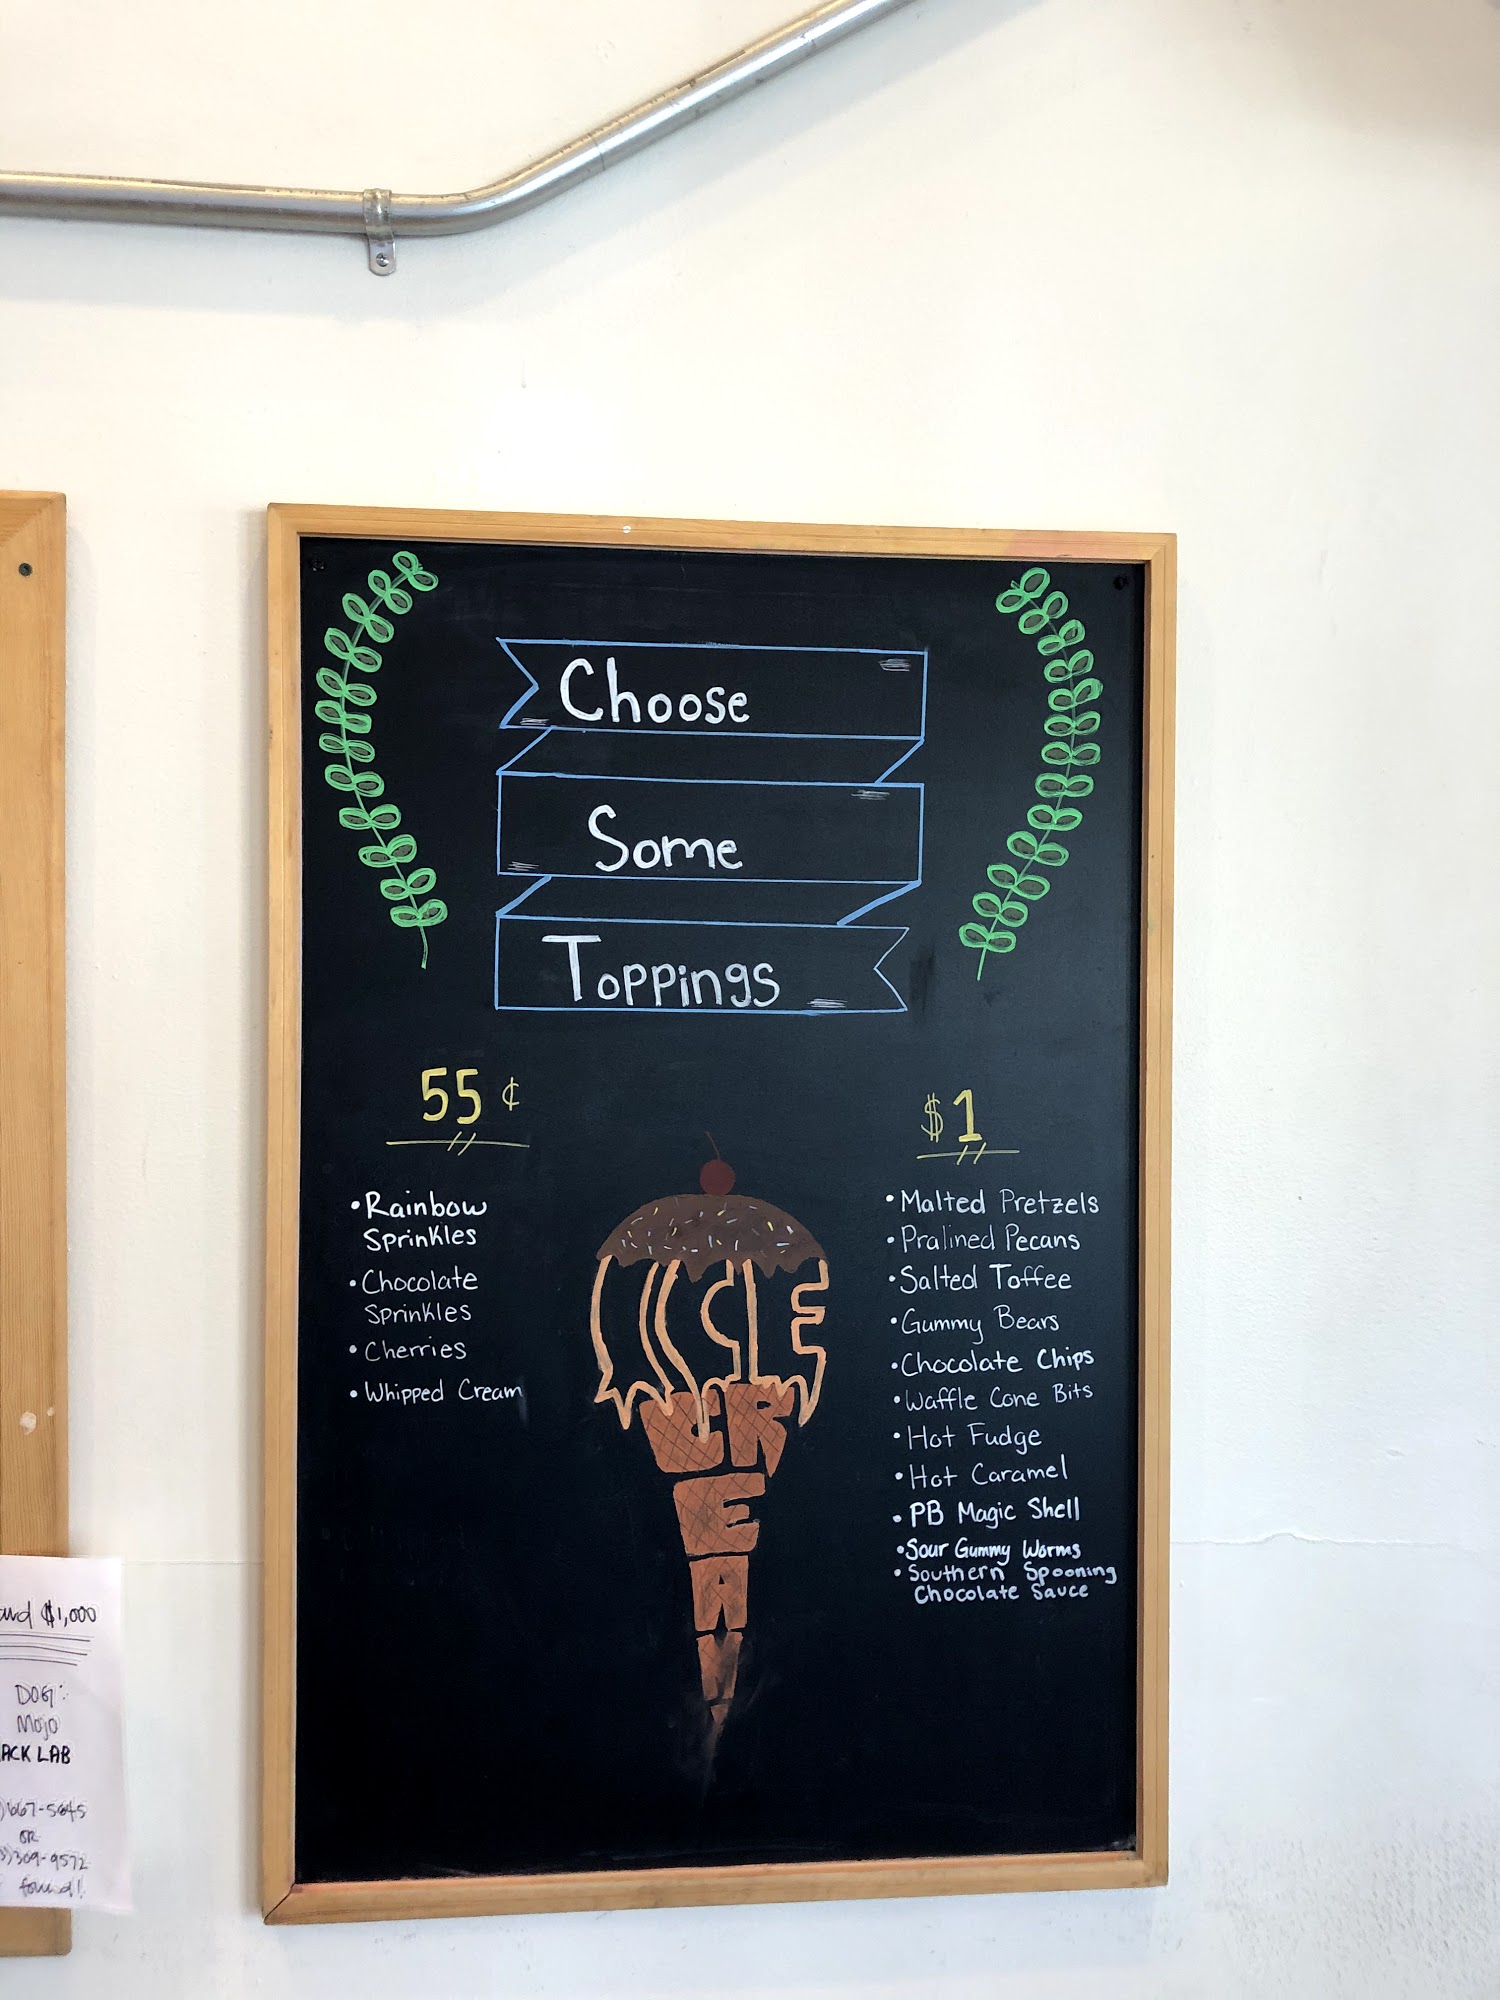 Choose
Some
Toppings
55 ¢
• Rainbow
Sprinkles
• Chocolate
Sprinkles
• Cherries
• Whipped Cream
$1
• Malted Pretzels
• Pralined Pecans
• Salted Toffee
• Gummy Bears
• Chocolate Chips
• Waffle Cone Bits
• Hot Fudge
• Hot Caramel
• PB Magic Shell
• Sour Gummy Worms
• Southern Spooning
Chocolate Sauce
ICE
CR
E
A
M
$1,000
DOG:
Mojo
LAB
OR
309-9572
found!